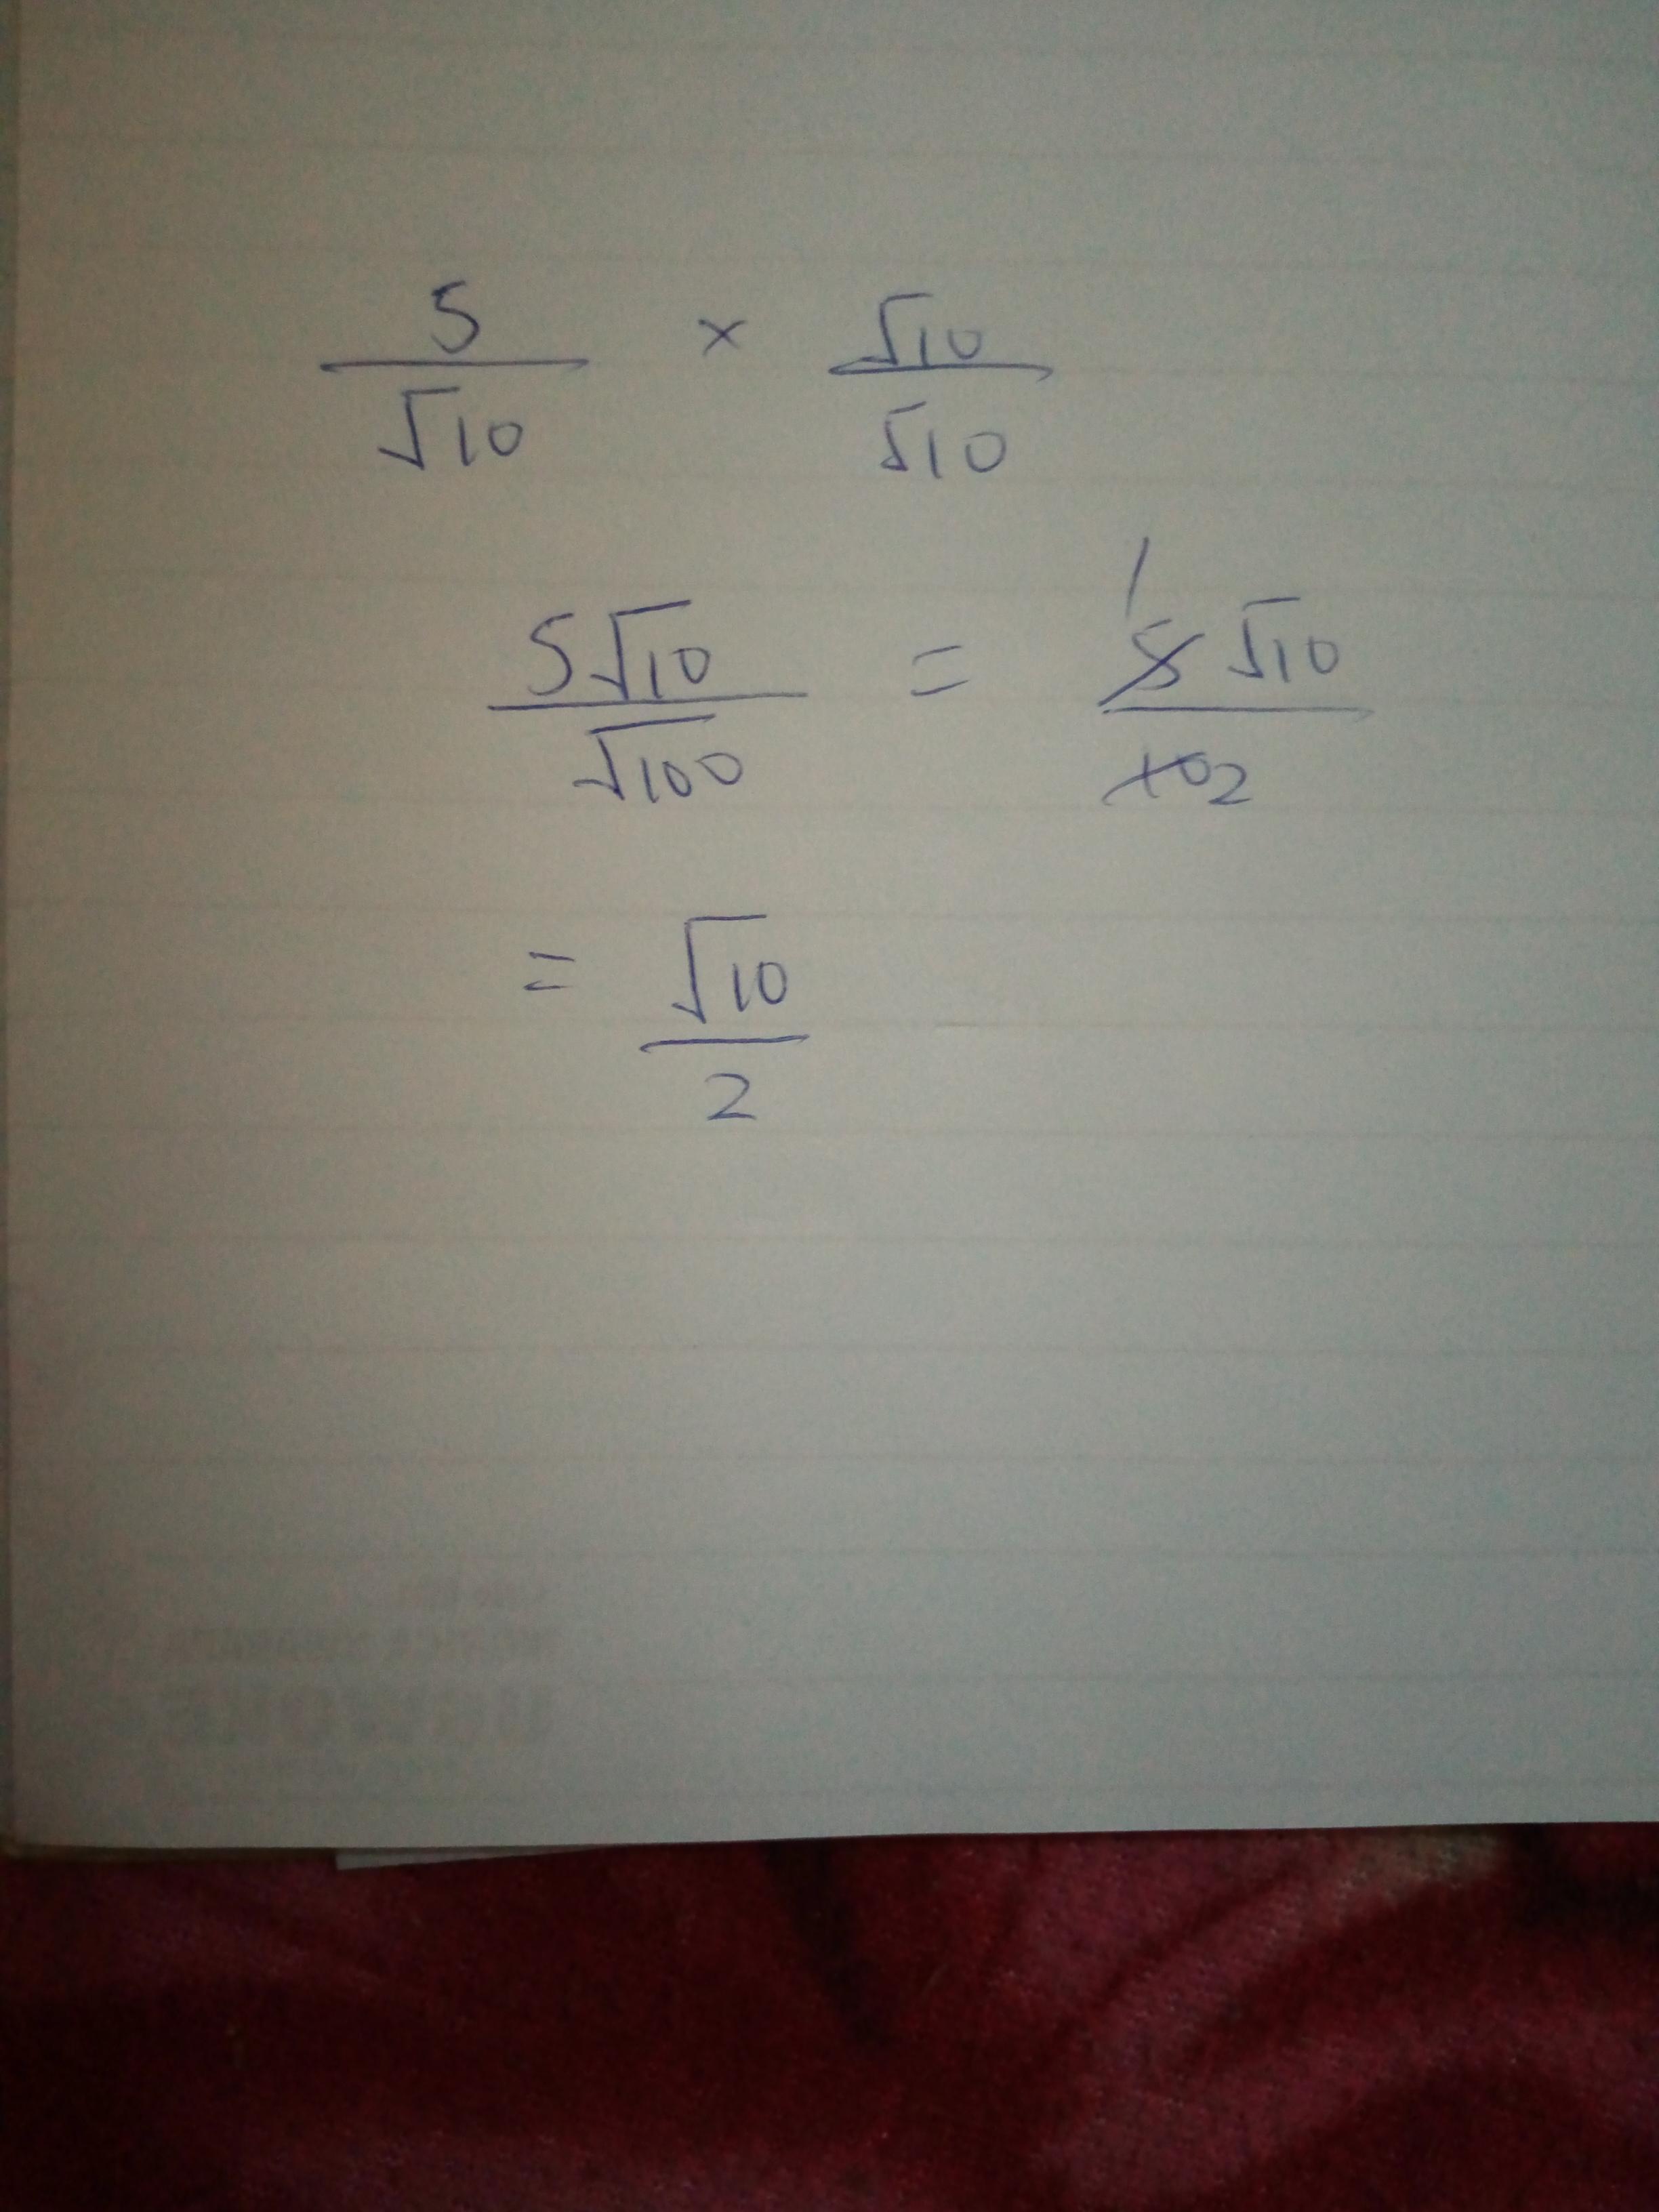 5/√10 × √10/√10
5√10/√100 = 1 5√10/10 2
= √10/2